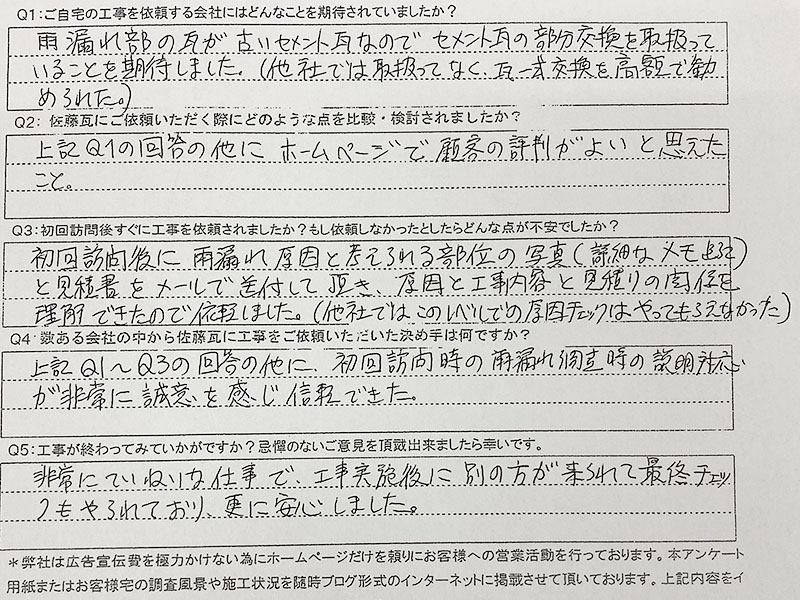 Q1:ご自宅の工事を依頼する会社にはどんなことを期待されていましたか？
雨漏れ部の瓦が古いセメント瓦なのでセメント瓦の部分交換を取扱って
いることを期待しました。(他社では取扱ってなく、瓦一式交換を高額で勧
められた。)
Q2: 佐藤瓦にご依頼いただく際にどのような点を比較・検討されましたか？
上記Q1の回答の他に ホームページで顧客の評判がよいと思えた
こと。
Q3:初回訪問後すぐに工事を依頼されましたか？もし依頼しなかったとしたらどんな点が不安でしたか？
初回訪問後に雨漏れ原因と考えられる部位の写真(詳細なメモ)
と見積書をメールで送付して頂き、原因と工事内容と見積りの関係を
理解できたので依頼しました。(他社ではこのレベルでの原因チェックはやってもらえなかった)
Q4:数ある会社の中から佐藤瓦に工事をご依頼いただいた決め手は何ですか？
上記Q1～Q3の回答の他に、初回訪問時の雨漏れ調査時の説明対応
が非常に誠意を感じ信頼できた。
Q5:工事が終わってみていかがですか？忌憚のないご意見を頂戴出来ましたら幸いです。
非常にていねいな仕事で、工事実施後に別の方が来られて最終チェッ
クもやられており、更に安心しました。
＊弊社は広告宣伝費を極力かけない為にホームページだけを頼りにお客様への営業活動を行っております。本アンケート
用紙またはお客様宅の調査風景や施工状況を随時ブログ形式のインターネットに掲載させて頂いております。上記内容をイ